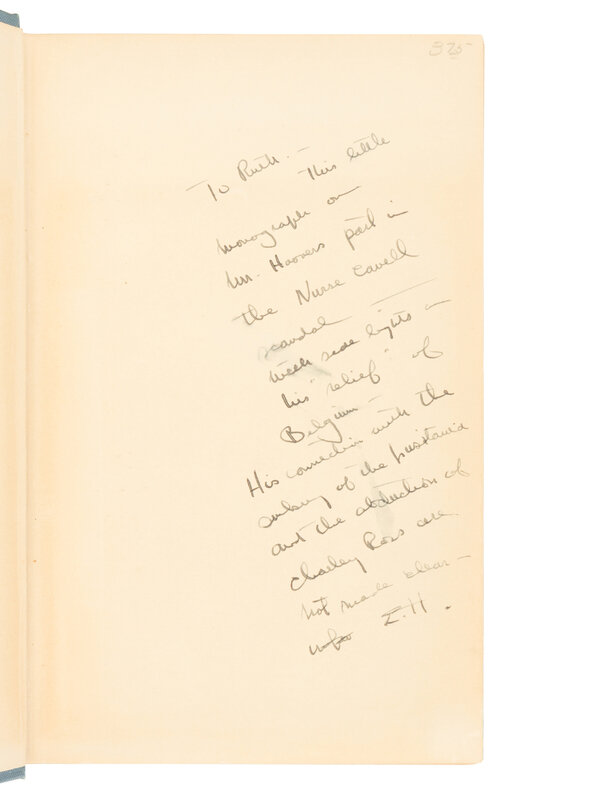 375-
To Ruth. — This little
monograph on
Mr. Hoovers part in
the Nurse Cavell
scandal —
with side lights on
his "relief" of
Belgium —
His connection with the
sinking of the Lusitania
and the abduction of
Charley Ross are
not made clear —
E.H.